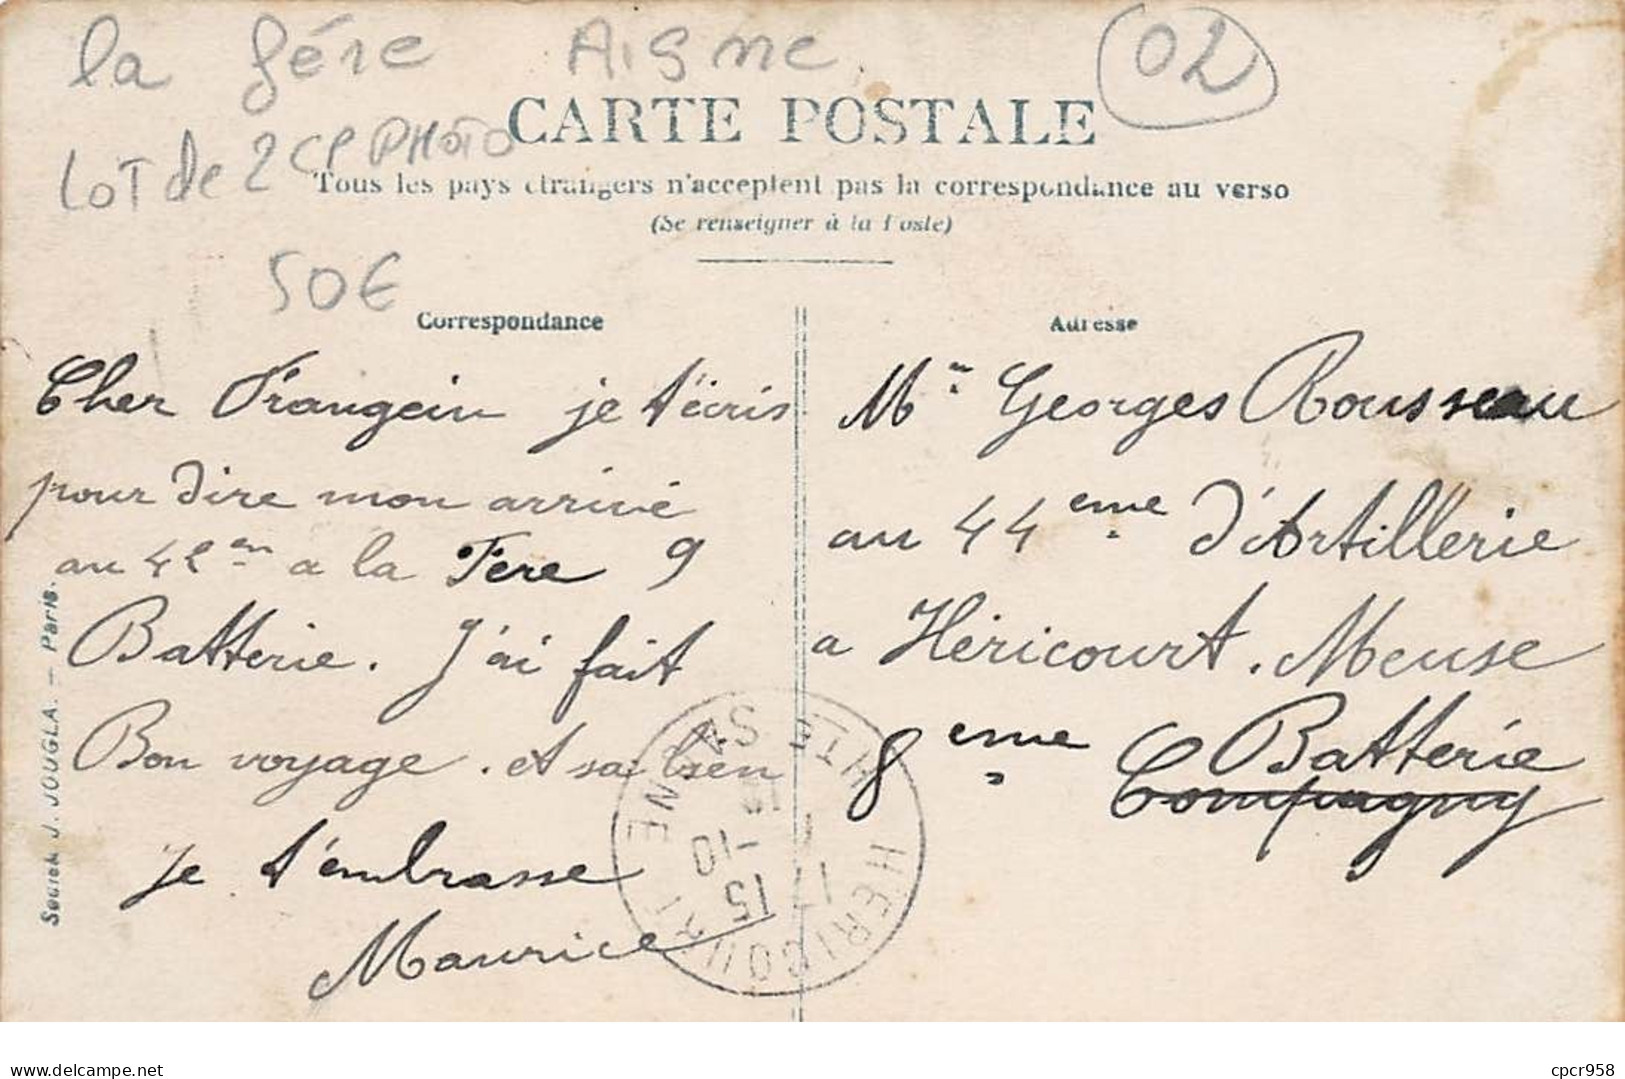 la fére Aisne 02
LOT de 2 CP PHOTO
50€
CARTE POSTALE
Tous les pays étrangers n'acceptent pas la correspondance au verso
(Se renseigner à la Poste)
Correspondance
Cher Frangein je t'écris
pour dire mon arrivé
au 42em a la Fere 9
Batterie. J'ai fait
Bon voyage. et sa bien
je t'embrasse
Maurice
Adresse
Mr Georges Rousseau
au 44eme d'Artillerie
a Héricourt. Meuse
8eme Batterie
Compagny
Société J. JOUGLA. — Paris.
HERICOURT HTE SAONE
17 15
-10
cpcr958